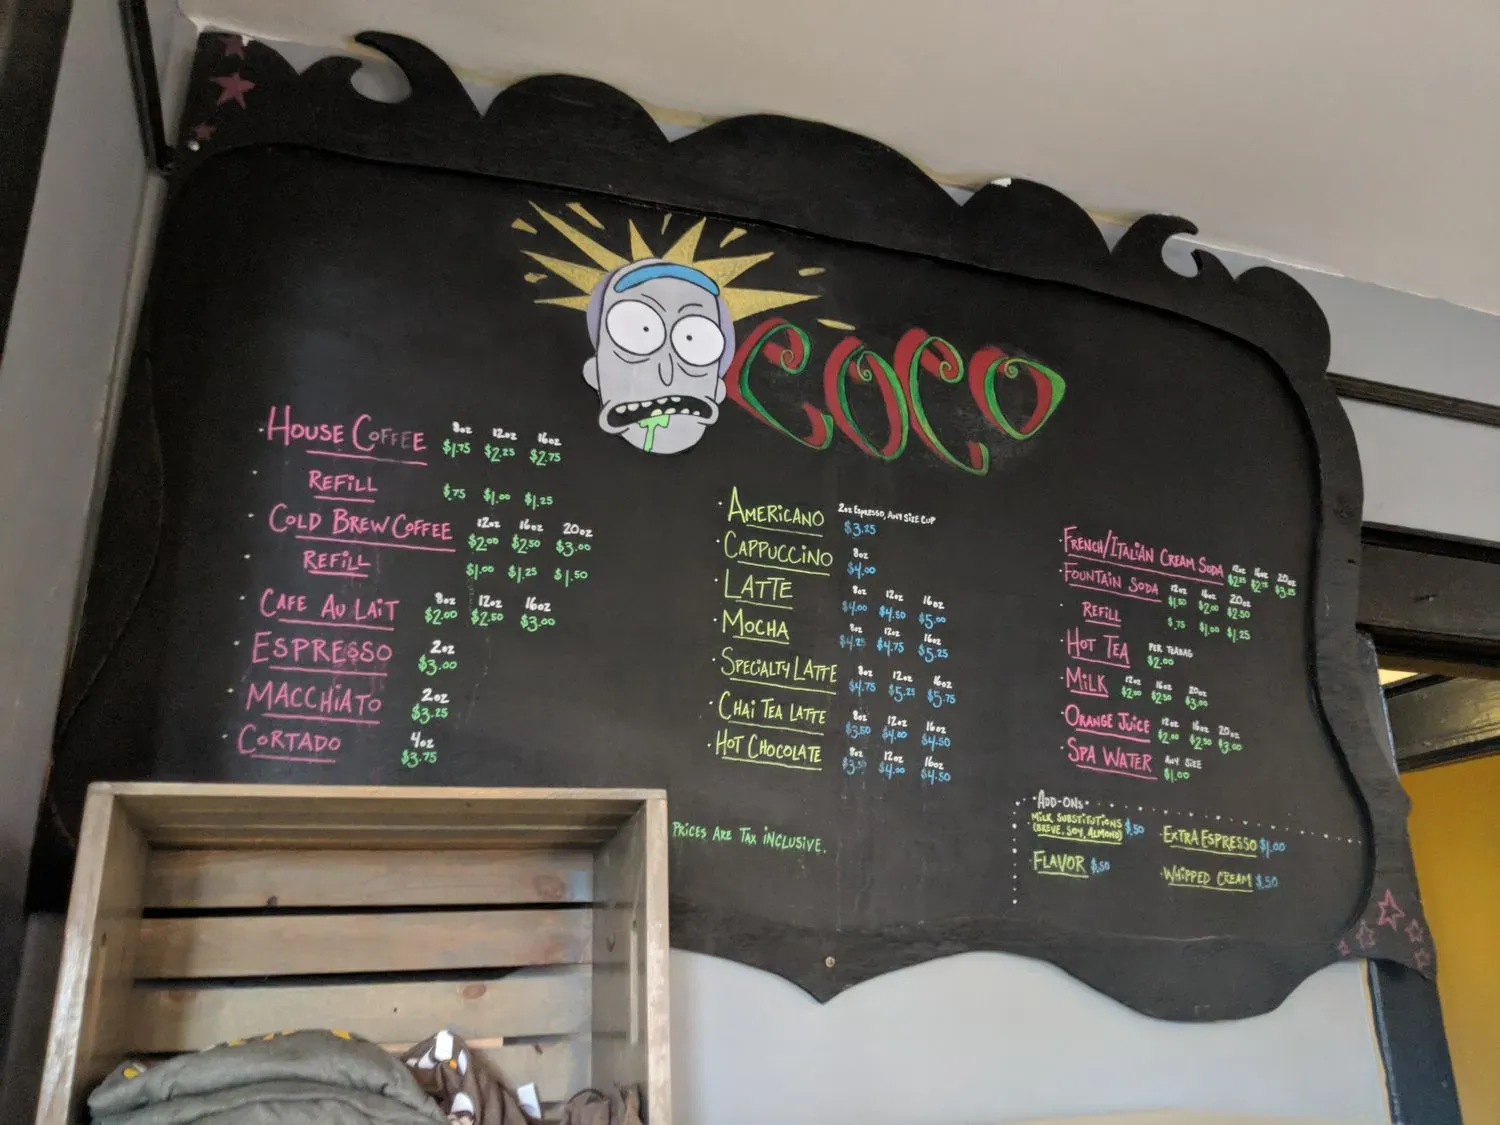 COCO
HOUSE COFFEE 8oz 12oz 16oz
$1.75 $2.25 $2.75
REFILL $.75 $1.00 $1.25
COLD BREW COFFEE 12oz 16oz 20oz
$2.00 $2.50 $3.00
REFILL $1.00 $1.25 $1.50
CAFE AU LAIT 8oz 12oz 16oz
$2.00 $2.50 $3.00
ESPRESSO 2oz
$3.00
MACCHIATO 2oz
$3.25
CORTADO 4oz
$3.75
AMERICANO 2oz ESPRESSO, ANY SIZE CUP
$3.25
CAPPUCCINO 8oz
$4.00
LATTE 8oz 12oz 16oz
$4.00 $4.50 $5.00
MOCHA 8oz 12oz 16oz
$4.25 $4.75 $5.25
SPECIALTY LATTE 8oz 12oz 16oz
$4.75 $5.25 $5.75
CHAI TEA LATTE 8oz 12oz 16oz
$3.50 $4.00 $4.50
HOT CHOCOLATE 8oz 12oz 16oz
$3.50 $4.00 $4.50
PRICES ARE TAX INCLUSIVE.
FRENCH/ITALIAN CREAM SODA 12oz 16oz 20oz
$2.25 $2.75 $3.25
FOUNTAIN SODA 12oz 16oz 20oz
$1.50 $2.00 $2.50
REFILL $.75 $1.00 $1.25
HOT TEA PER TEABAG
$2.00
MILK 12oz 16oz 20oz
$2.00 $2.50 $3.00
ORANGE JUICE 12oz 16oz 20oz
$2.00 $2.50 $3.00
SPA WATER ANY SIZE
$1.00
ADD-ONS
MILK SUBSTITUTIONS
(BREVE, SOY, ALMOND) $.50
EXTRA ESPRESSO $1.00
FLAVOR $.50
WHIPPED CREAM $.50